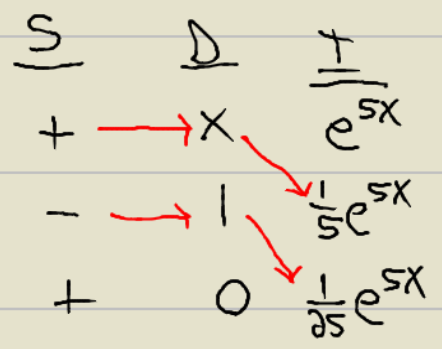 S D I
+ x e^{5x}
- 1 \frac{1}{5}e^{5x}
+ 0 \frac{1}{25}e^{5x}